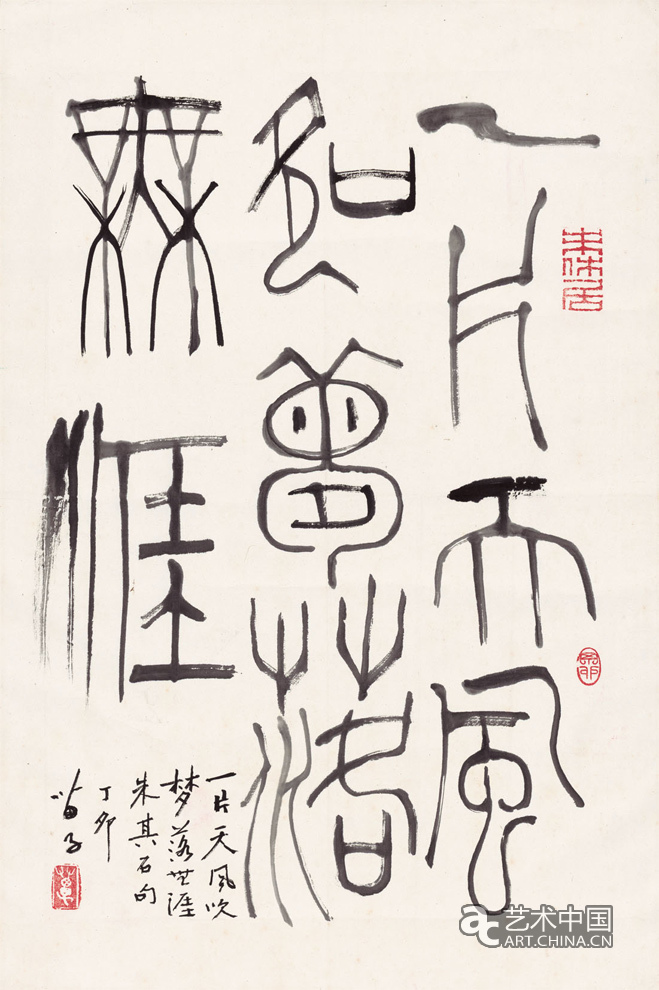 一片天風
吹夢落
無涯
一片天风吹
梦落無涯
朱其石句
丁卯
艺术中国
ART.CHINA.CN